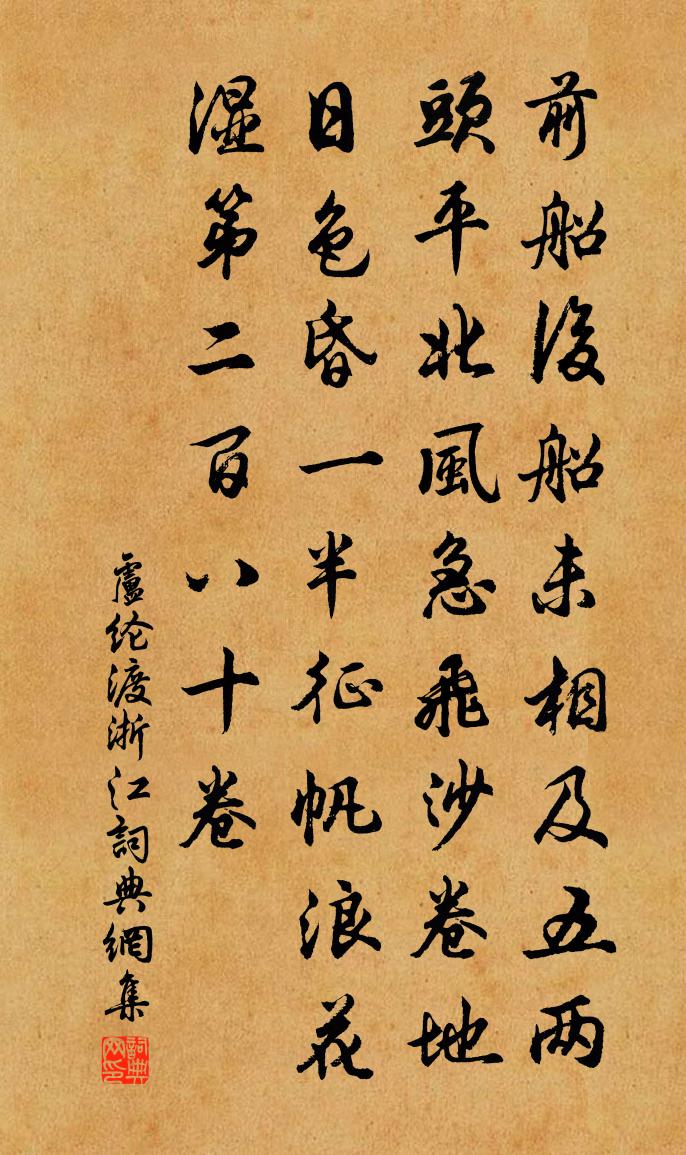 前船後船未相及五两
頭平北風急飛沙卷地
日色昏一半征帆浪花
湿第二百八十卷
盧纶渡浙江詞典網集
詞典网印